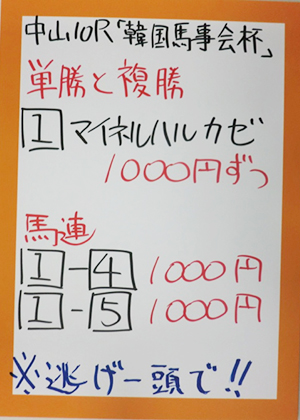 中山10R「韓国馬事会杯」
単勝と複勝
1 マイネルハルカゼ
1000円ずつ
馬連
1-4 1000円
1-5 1000円
※逃げ一頭で!!